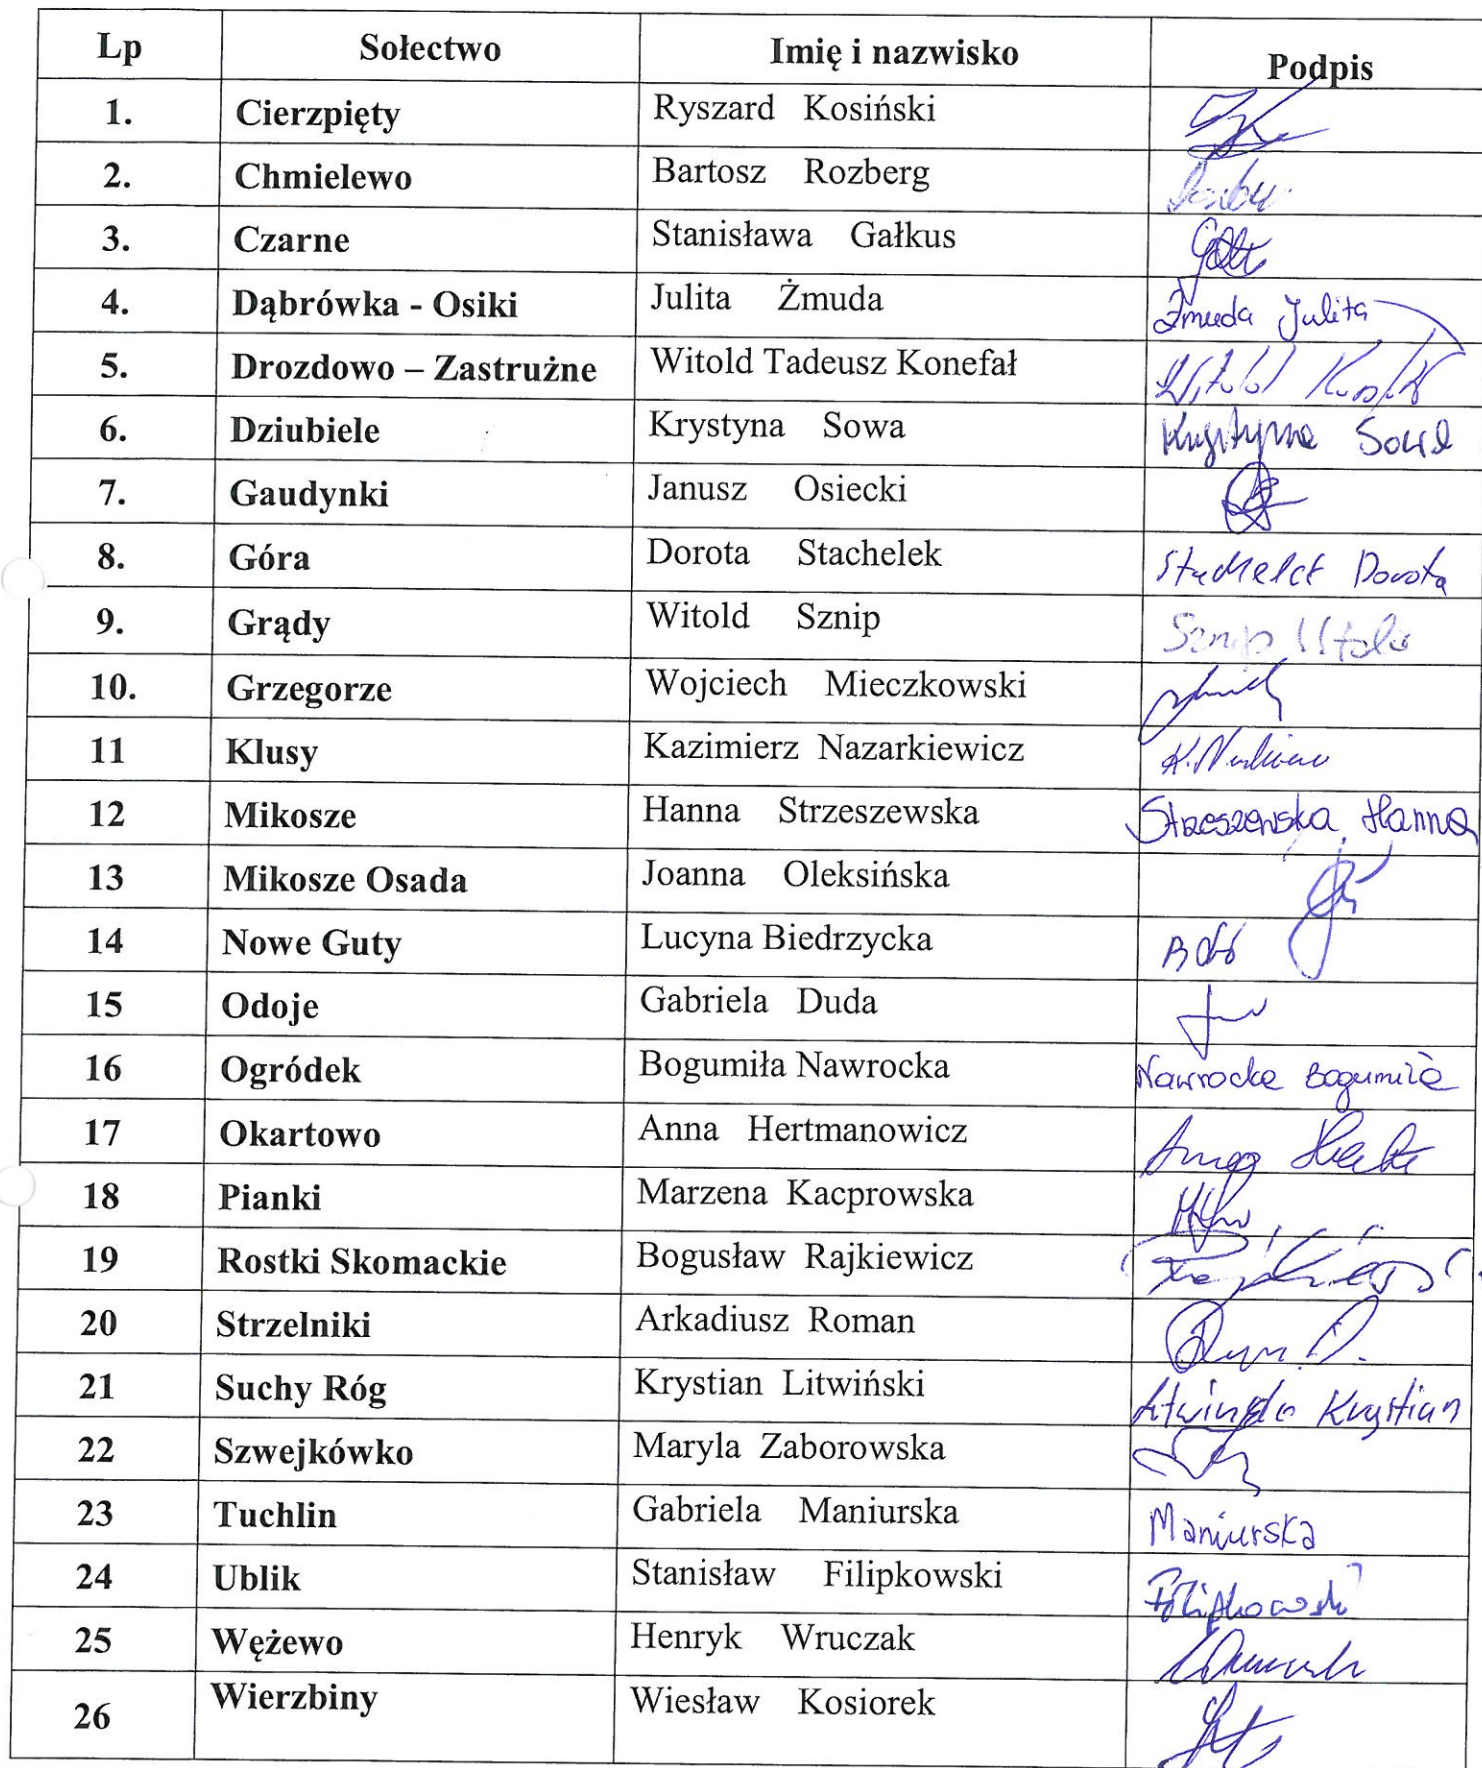 Lp Sołectwo Imię i nazwisko Podpis
1. Cierzpięty Ryszard Kosiński
2. Chmielewo Bartosz Rozberg
3. Czarne Stanisława Gałkus
4. Dąbrówka - Osiki Julita Żmuda Żmuda Julita
5. Drozdowo – Zastrużne Witold Tadeusz Konefał Witold
6. Dziubiele Krystyna Sowa Krystyna Sowa
7. Gaudynki Janusz Osiecki
8. Góra Dorota Stachelek Stachelek Dorota
9. Grądy Witold Sznip Sznip Witold
10. Grzegorze Wojciech Mieczkowski
11 Klusy Kazimierz Nazarkiewicz
12 Mikosze Hanna Strzeszewska Strzeszewska Hanna
13 Mikosze Osada Joanna Oleksińska
14 Nowe Guty Lucyna Biedrzycka
15 Odoje Gabriela Duda
16 Ogródek Bogumiła Nawrocka Nawrocka Bogumiła
17 Okartowo Anna Hertmanowicz Anna
18 Pianki Marzena Kacprowska
19 Rostki Skomackie Bogusław Rajkiewicz
20 Strzelniki Arkadiusz Roman
21 Suchy Róg Krystian Litwiński Litwiński Krystian
22 Szwejkówko Maryla Zaborowska
23 Tuchlin Gabriela Maniurska Maniurska
24 Ublik Stanisław Filipkowski Filipkowski
25 Wężewo Henryk Wruczak
26 Wierzbiny Wiesław Kosiorek